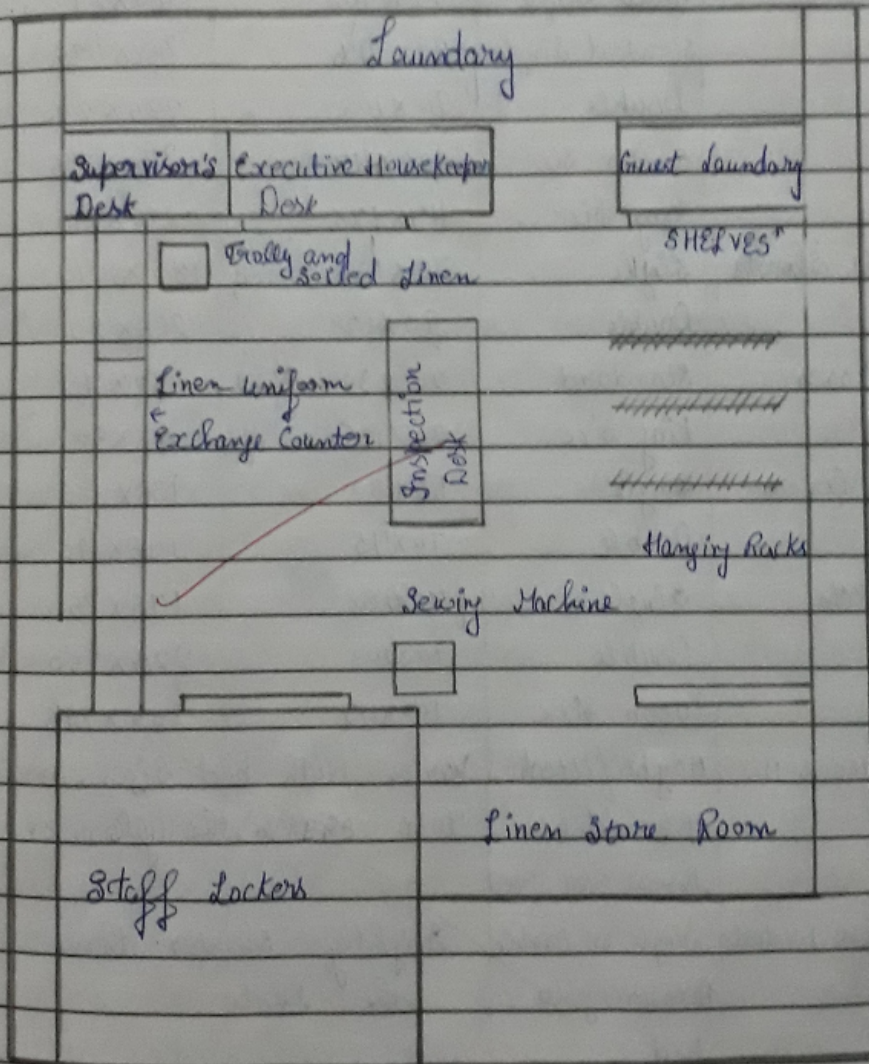 Laundary
Supervisor's
Desk
Executive Housekeeper
Desk
Guest Laundary
SHELVES
Trolly and
Soiled Linen
Linen uniform
Exchange Counter
Inspection
Desk
Hanging Racks
Sewing Machine
Linen Store Room
Staff Lockers